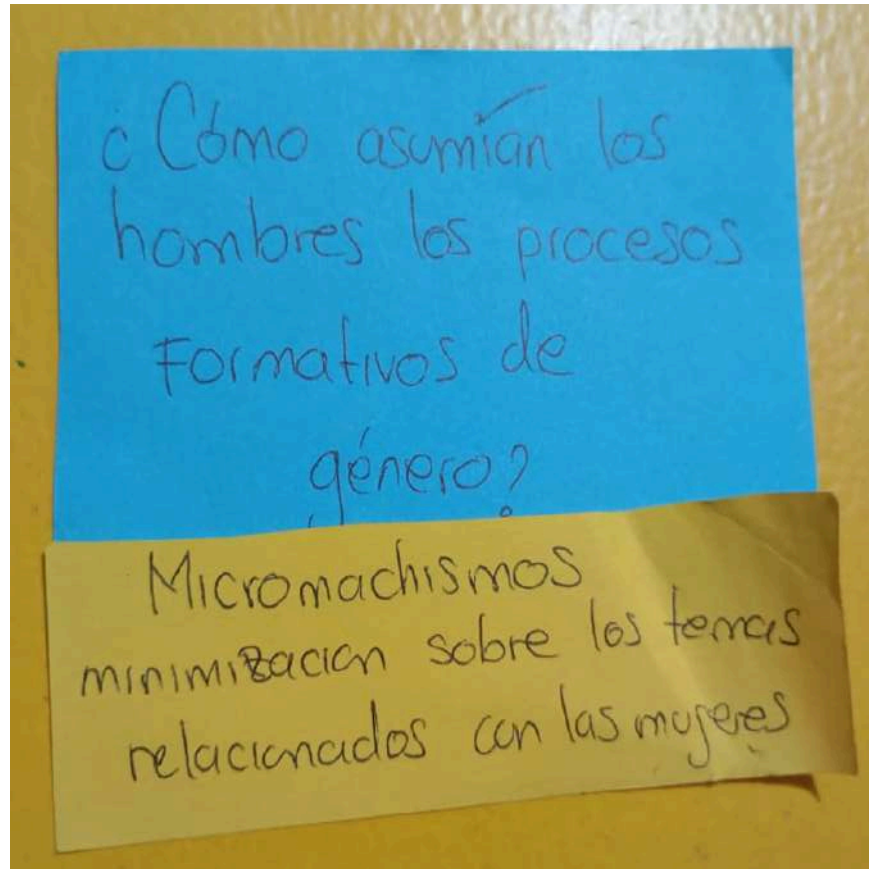 ¿Cómo asumían los
hombres los procesos
Formativos de
género?
Micromachismos
minimización sobre los temas
relacionados con las mujeres